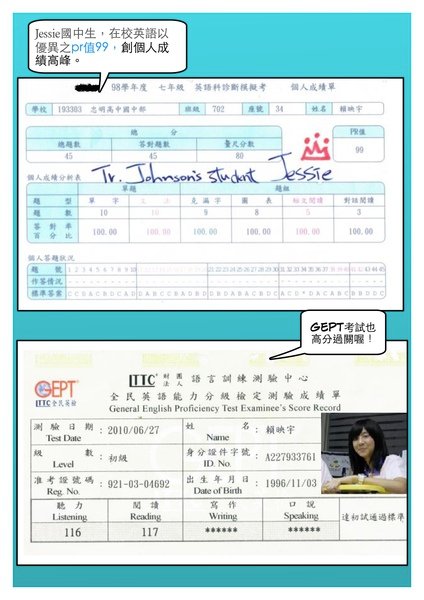 Jessie國中生，在校英語以
優異之pr值99，創個人成
績高峰。
98學年度 七年級 英語科診斷模擬考 個人成績單
學校 193303 忠明高中國中部 班級 702 座號 34 姓名 賴映宇
總分 PR值
總題數 答對題數 量尺分數
45 45 80 99
Tr. Johnson's student Jessie
個人成績分析表
單題 題組
題型 單字 文法 克漏字 圖表 短文閱讀 對話閱讀
題數 10 10 9 8 5 3
答對率 百分比 100.00 100.00 100.00 100.00 100.00 100.00
個人答題狀況
題號
作答情況
標準答案
GEPT考試也
高分過關喔！
GEPT
LTTC 全民英檢
LTTC 財團法人 語言訓練測驗中心
全民英語能力分級檢定測驗成績單
General English Proficiency Test Examinee's Score Record
測驗日期 Test Date : 2010/06/27 姓名 Name : 賴映宇
級數 Level : 初級 身分證件字號 ID. No. : A227933761
准考證號碼 Reg. No. : 921-03-04692 出生年月日 Date of Birth : 1996/11/03
聽力 閱讀 寫作 口說
Listening Reading Writing Speaking 達初試通過標準
116 117 ****** ******